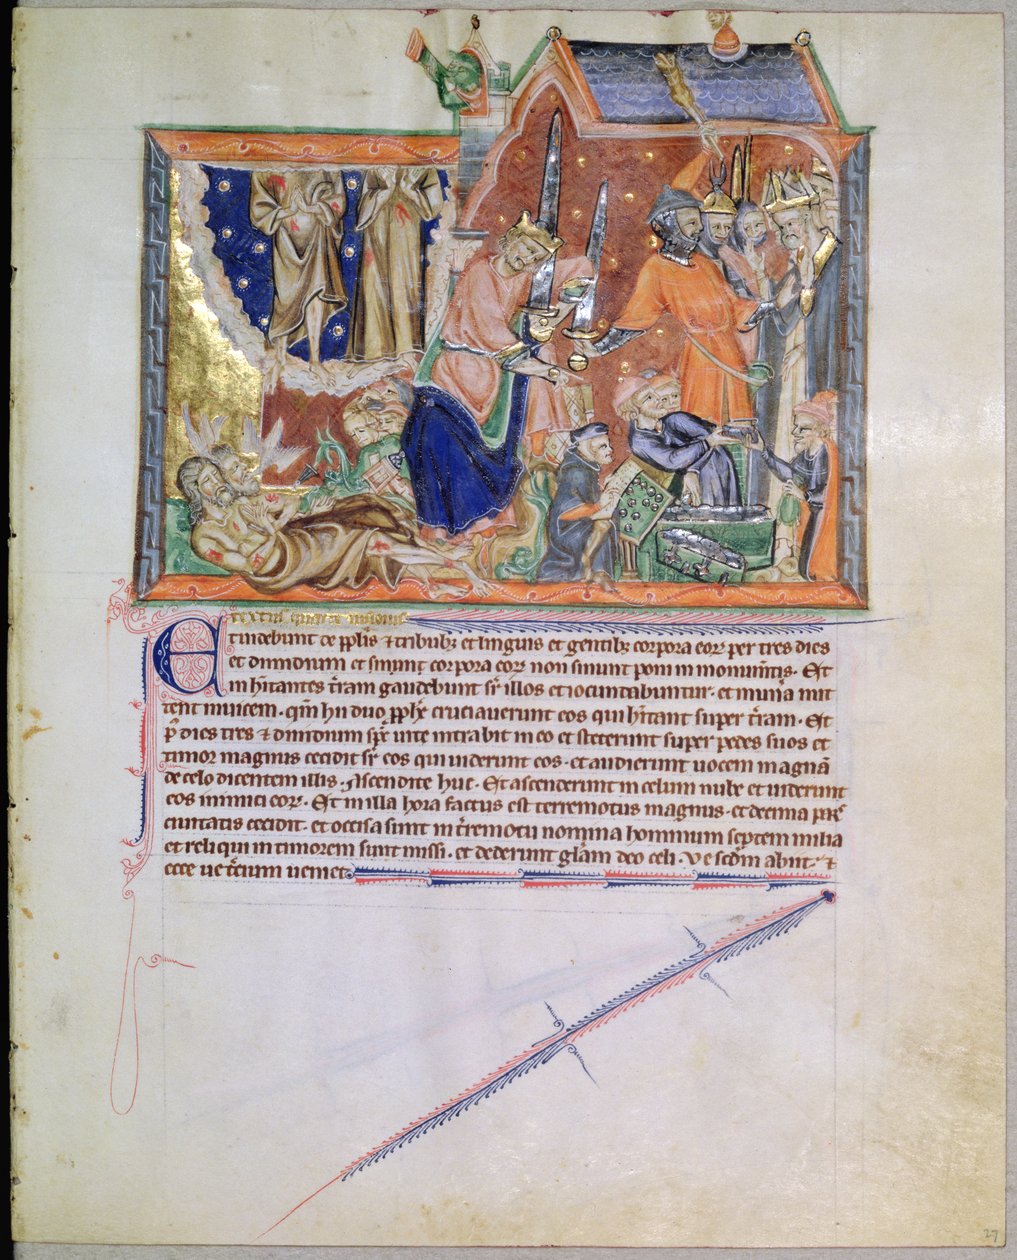 Et uidebunt de pp̄lis ⁊ tribubꝫ et linguis et gentibꝫ corpora eoꝝ per tres dies
et dimidium et sinunt corpora eoꝝ non sinunt poni in monumtīs. Et
inhītantes tr̄am gaudebunt sr̄ illos et iocundabuntur. et munꝰa mit
tent inuicem. qm̄ hii duo pp̄he cruciauerunt eos qui hītant super tr̄am. Et
p̄ dies tres ⁊ dimidium sp̄c uite intrabit in eo et steterunt super pedes suos et
timor magnus cecidit sr̄ eos qui uiderunt eos. et audierunt uocem magnā
de celo dicentem illis. Ascendite huc. Et ascenderunt in celum nube et uiderunt
eos inimici eoꝝ. Et in illa hora factus est terremotus magnus. et decima pars
ciuitatis cecidit. et occisa sunt in tr̄emotu nomina hominum septem milia
et reliqui in timorem sunt missi. et dederunt glām deo celi. Ve scd̄m abiit. ⁊
ecce ue tr̄cium ueniet
27